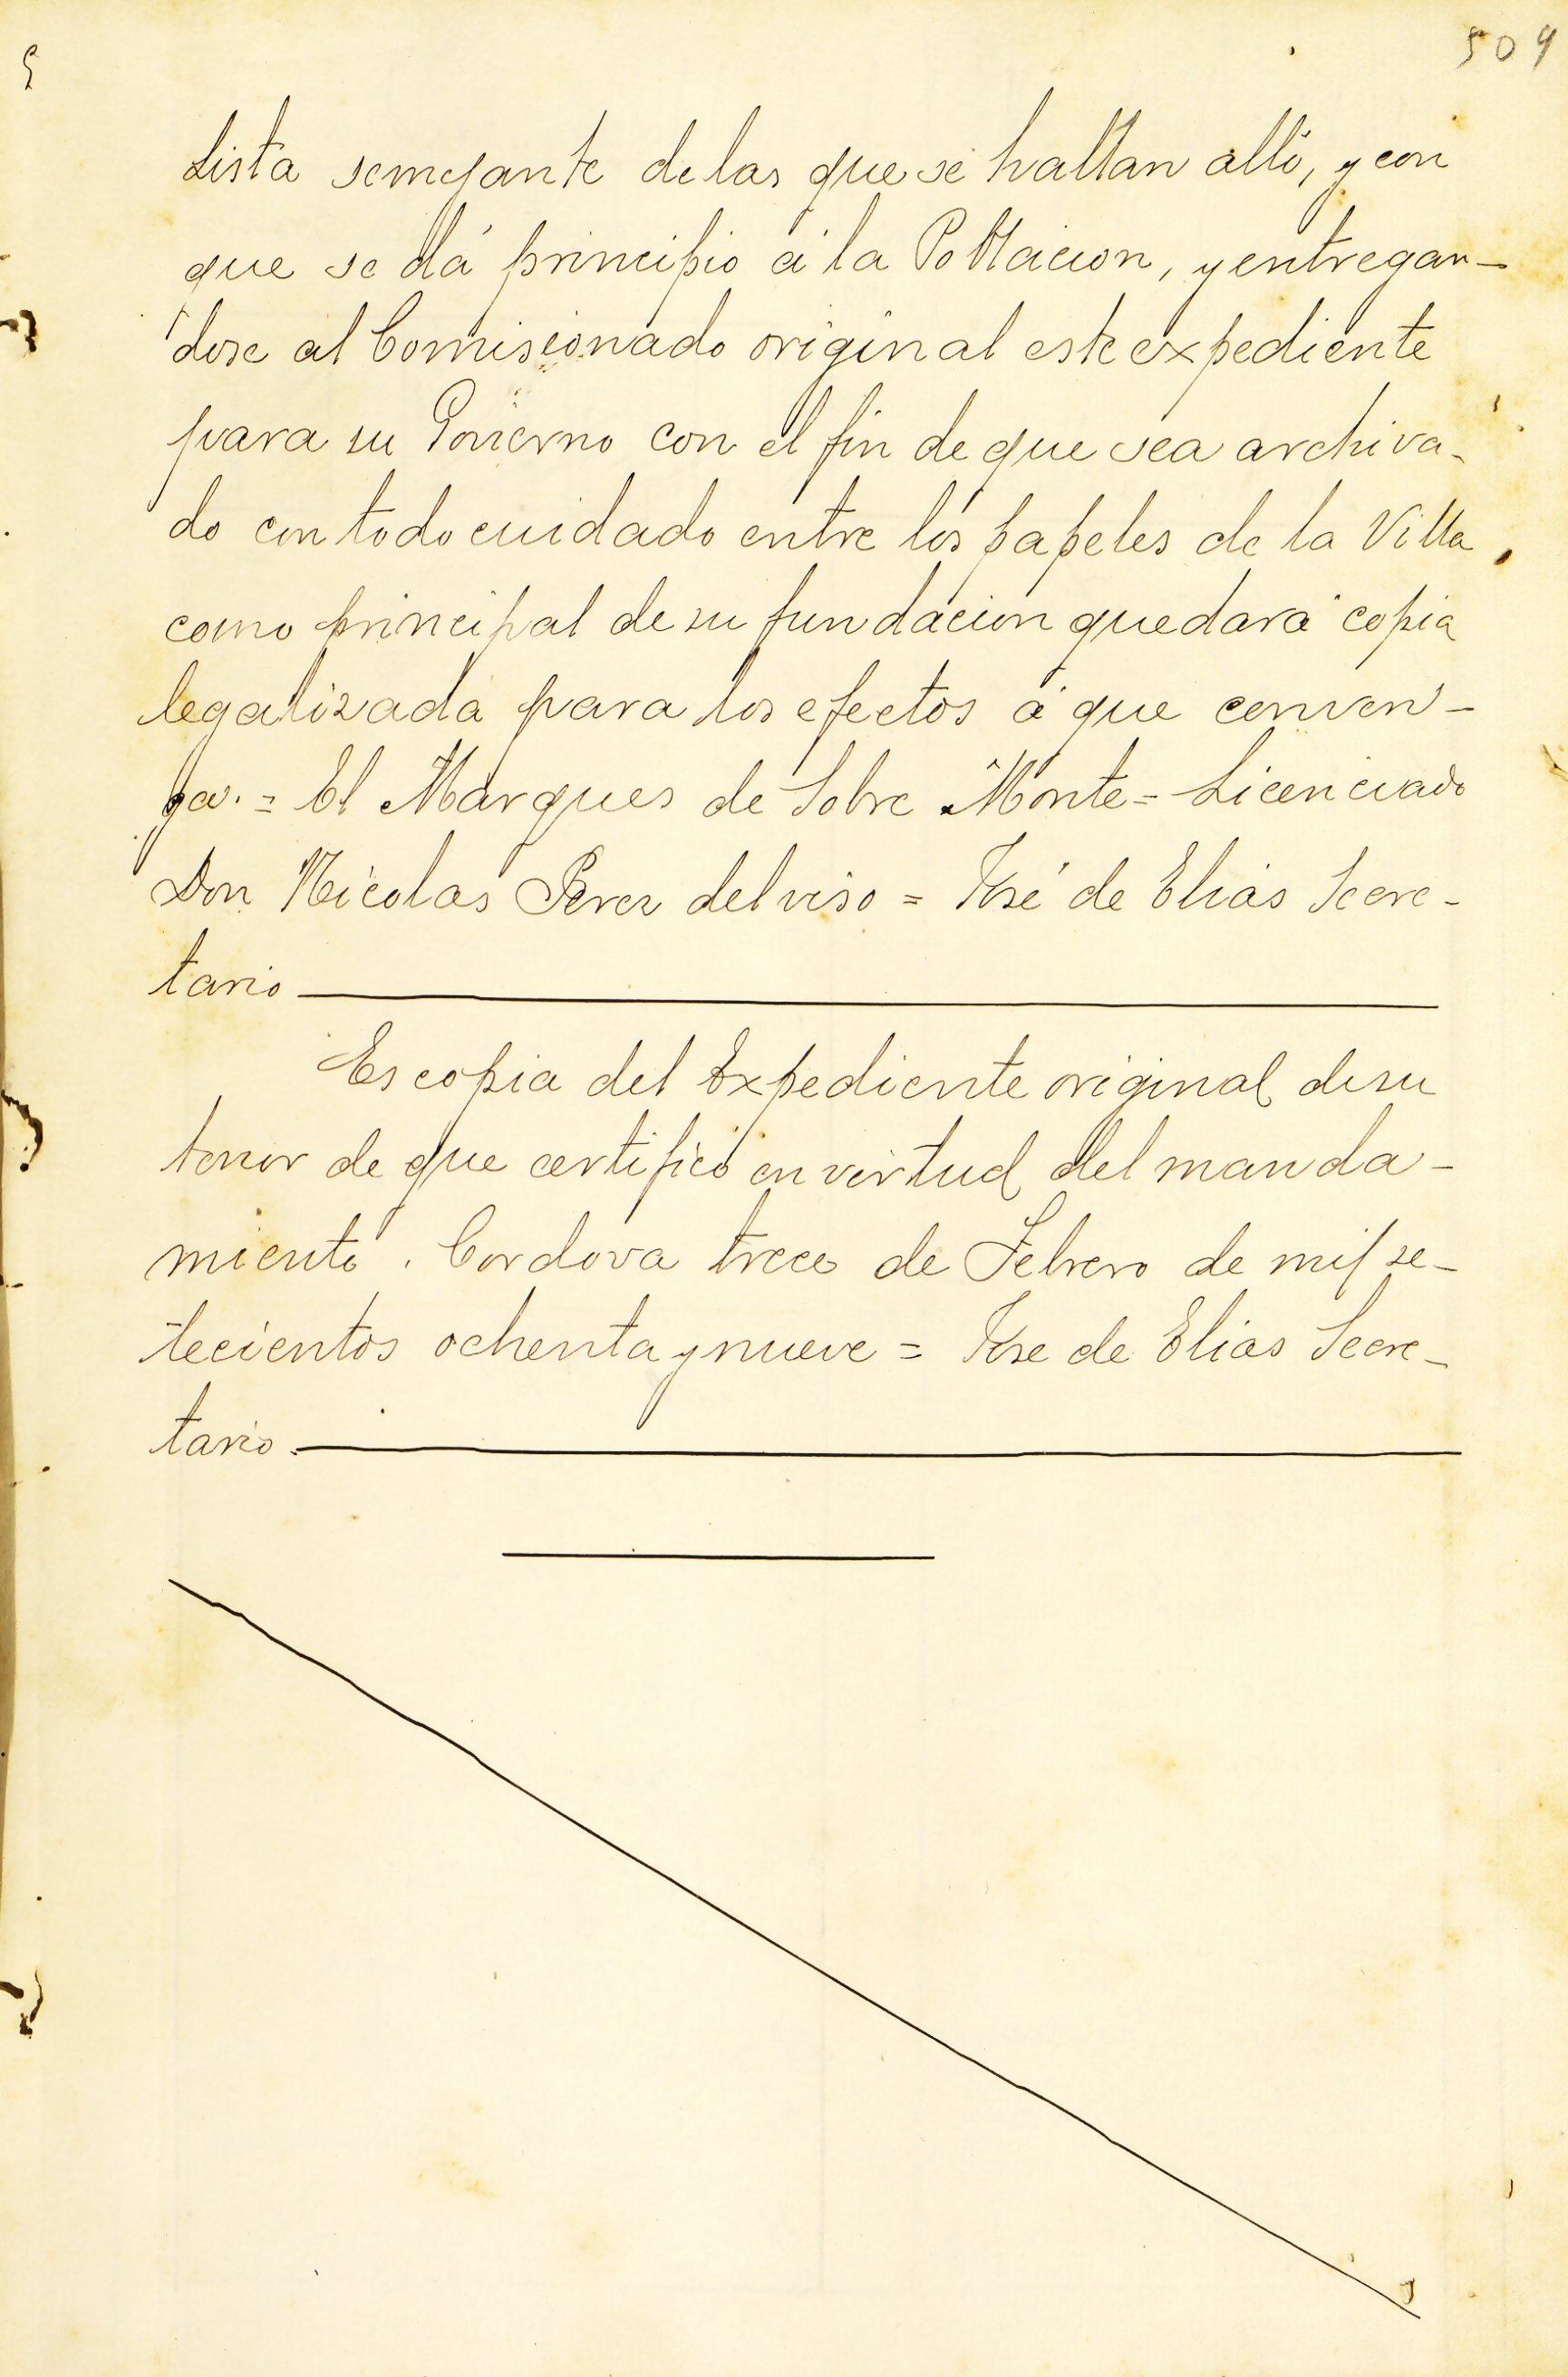 509
Lista semejante de las que se hallan alli, y con
que se dá principio á la Poblacion, y entregan-
dose al Comisionado original este expediente
para su Govierno con el fin de que sea archiva-
do con todo cuidado entre los papeles de la Villa,
como principal de su fundacion quedará copia
legalizada para los efectos á que conven-
ga. = El Marques de Sobre Monte = Licenciado
Don Nicolas Perez del viso = José de Elias Secre-
tario
Es copia del Expediente original de su
tenor de que certifico en virtud del manda-
miento. Cordova trece de Febrero de mil se-
tecientos ochenta y nueve = Jose de Elias Secre-
tario